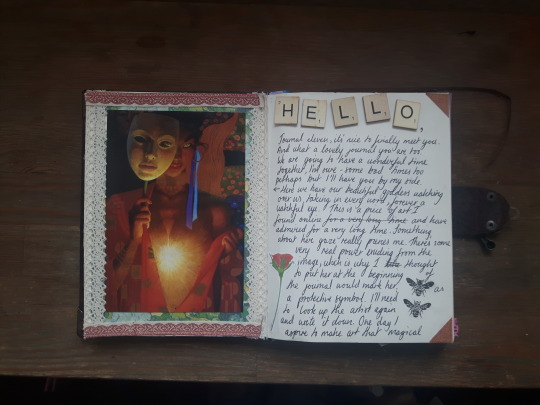 HELLO,
Journal eleven, it's nice to finally meet you.
And what a lovely journal you are too.
We are going to have a wonderful time
together, I'm sure - some bad times too
perhaps but I'll have you by my side.
← Here we have our beautiful goddess watching
over us, taking in every word, forever a
watchful eye. This is a piece of art I
found online for a very long time and have
admired for a very long time. Something
about her gaze really pierces me. There's some
very real power ending from the
image, which is why I thought
to put her at the beginning of
the journal would mark her as
a protective symbol. I'll need
to look up the artist again
and write it down. One day I
aspire to make art that magical